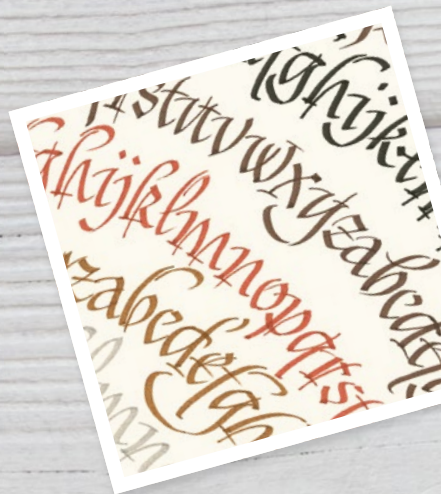 ghijk
stuvwxyzabcde
ghijklmnopqrst
zabcdefgh
mn